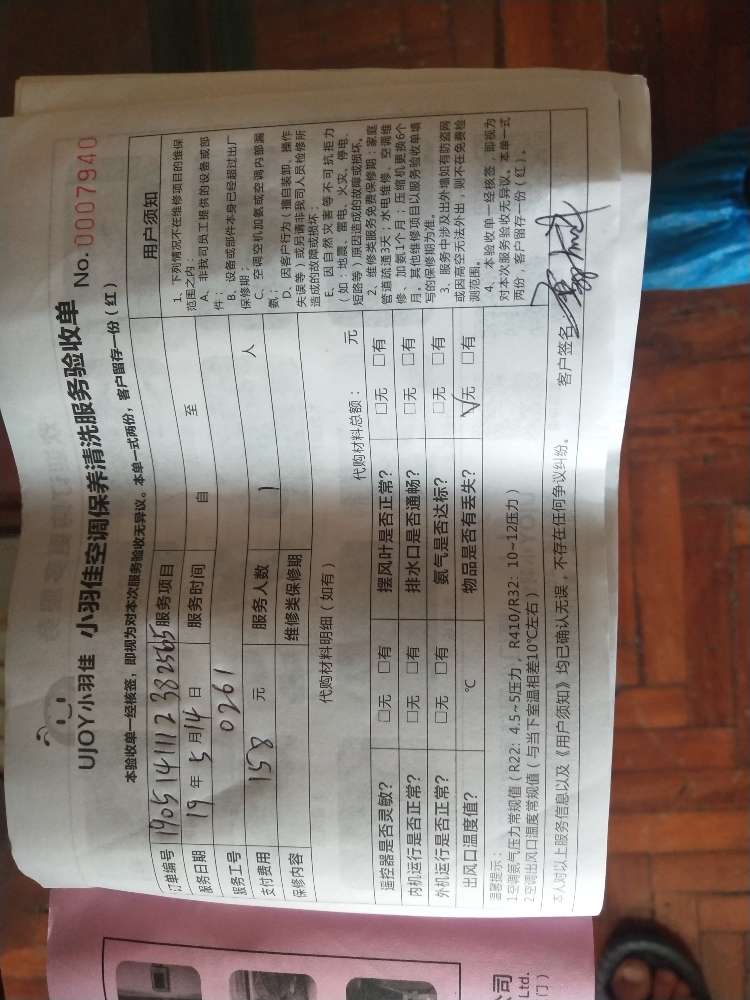 UJOY小羽佳 小羽佳空调保养清洗服务验收单 No. 0007940
本验收单一经核签，即视为对本次服务验收无异议。本单一式两份，客户留存一份（红）
订单编号 190514111238 2565 服务项目
服务日期 19 年 5 月 14 日 服务时间 自 至
服务工号 0261
支付费用 158 元 服务人数 1 人
保修内容 维修类保修期
代购材料明细（如有） 代购材料总额： 元
遥控器是否灵敏？ □无 □有 摆风叶是否正常？ □无 □有
内机运行是否正常？ □无 □有 排水口是否通畅？ □无 □有
外机运行是否正常？ □无 □有 氨气是否达标？ □无 □有
出风口温度值？ ℃ 物品是否有丢失？ ☑无 □有
温馨提示：
1空调氨气压力常规值（R22：4.5~5压力，R410/R32：10~12压力）
2空调出风口温度常规值（与当下室温相差10℃左右）
本人对以上服务信息以及《用户须知》均已确认无误，不存在任何争议纠纷。 客户签名：
用户须知
1、下列情况不在维修项目的维保
范围之内：
A、非我司员工提供的设备或部
件；
B、设备或部件本身已经超过出厂
保修期；
C、空调空机加氨或空调内部漏
氨；
D、因客户行为（擅自装卸、操作
失误等）或另请非我司人员检修所
造成的故障或损坏；
E、因自然灾害等不可抗拒力
（如：地震、雷电、火灾、停电、
短路等）原因造成的故障或损坏。
2、维修类服务免费保修期：家庭
管道疏通3天；水电维修、空调维
修、加氨1个月；压缩机更换6个
月。其他维修项目以服务验收单填
写的保修期为准。
3、服务中涉及出外墙如有防盗网
或因高空无法外出，则不在免费检
测范围。
4、本验收单一经核签，即视为
对本次服务验收无异议。本单一式
两份，客户留存一份（红）。
公司
Ltd.
门）